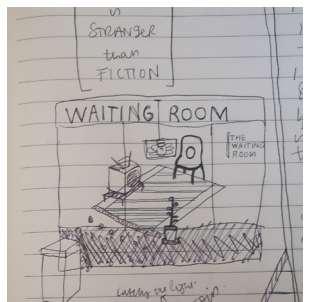 STRANGER
than
FICTION
WAITING ROOM
THE
WAITING
ROOM